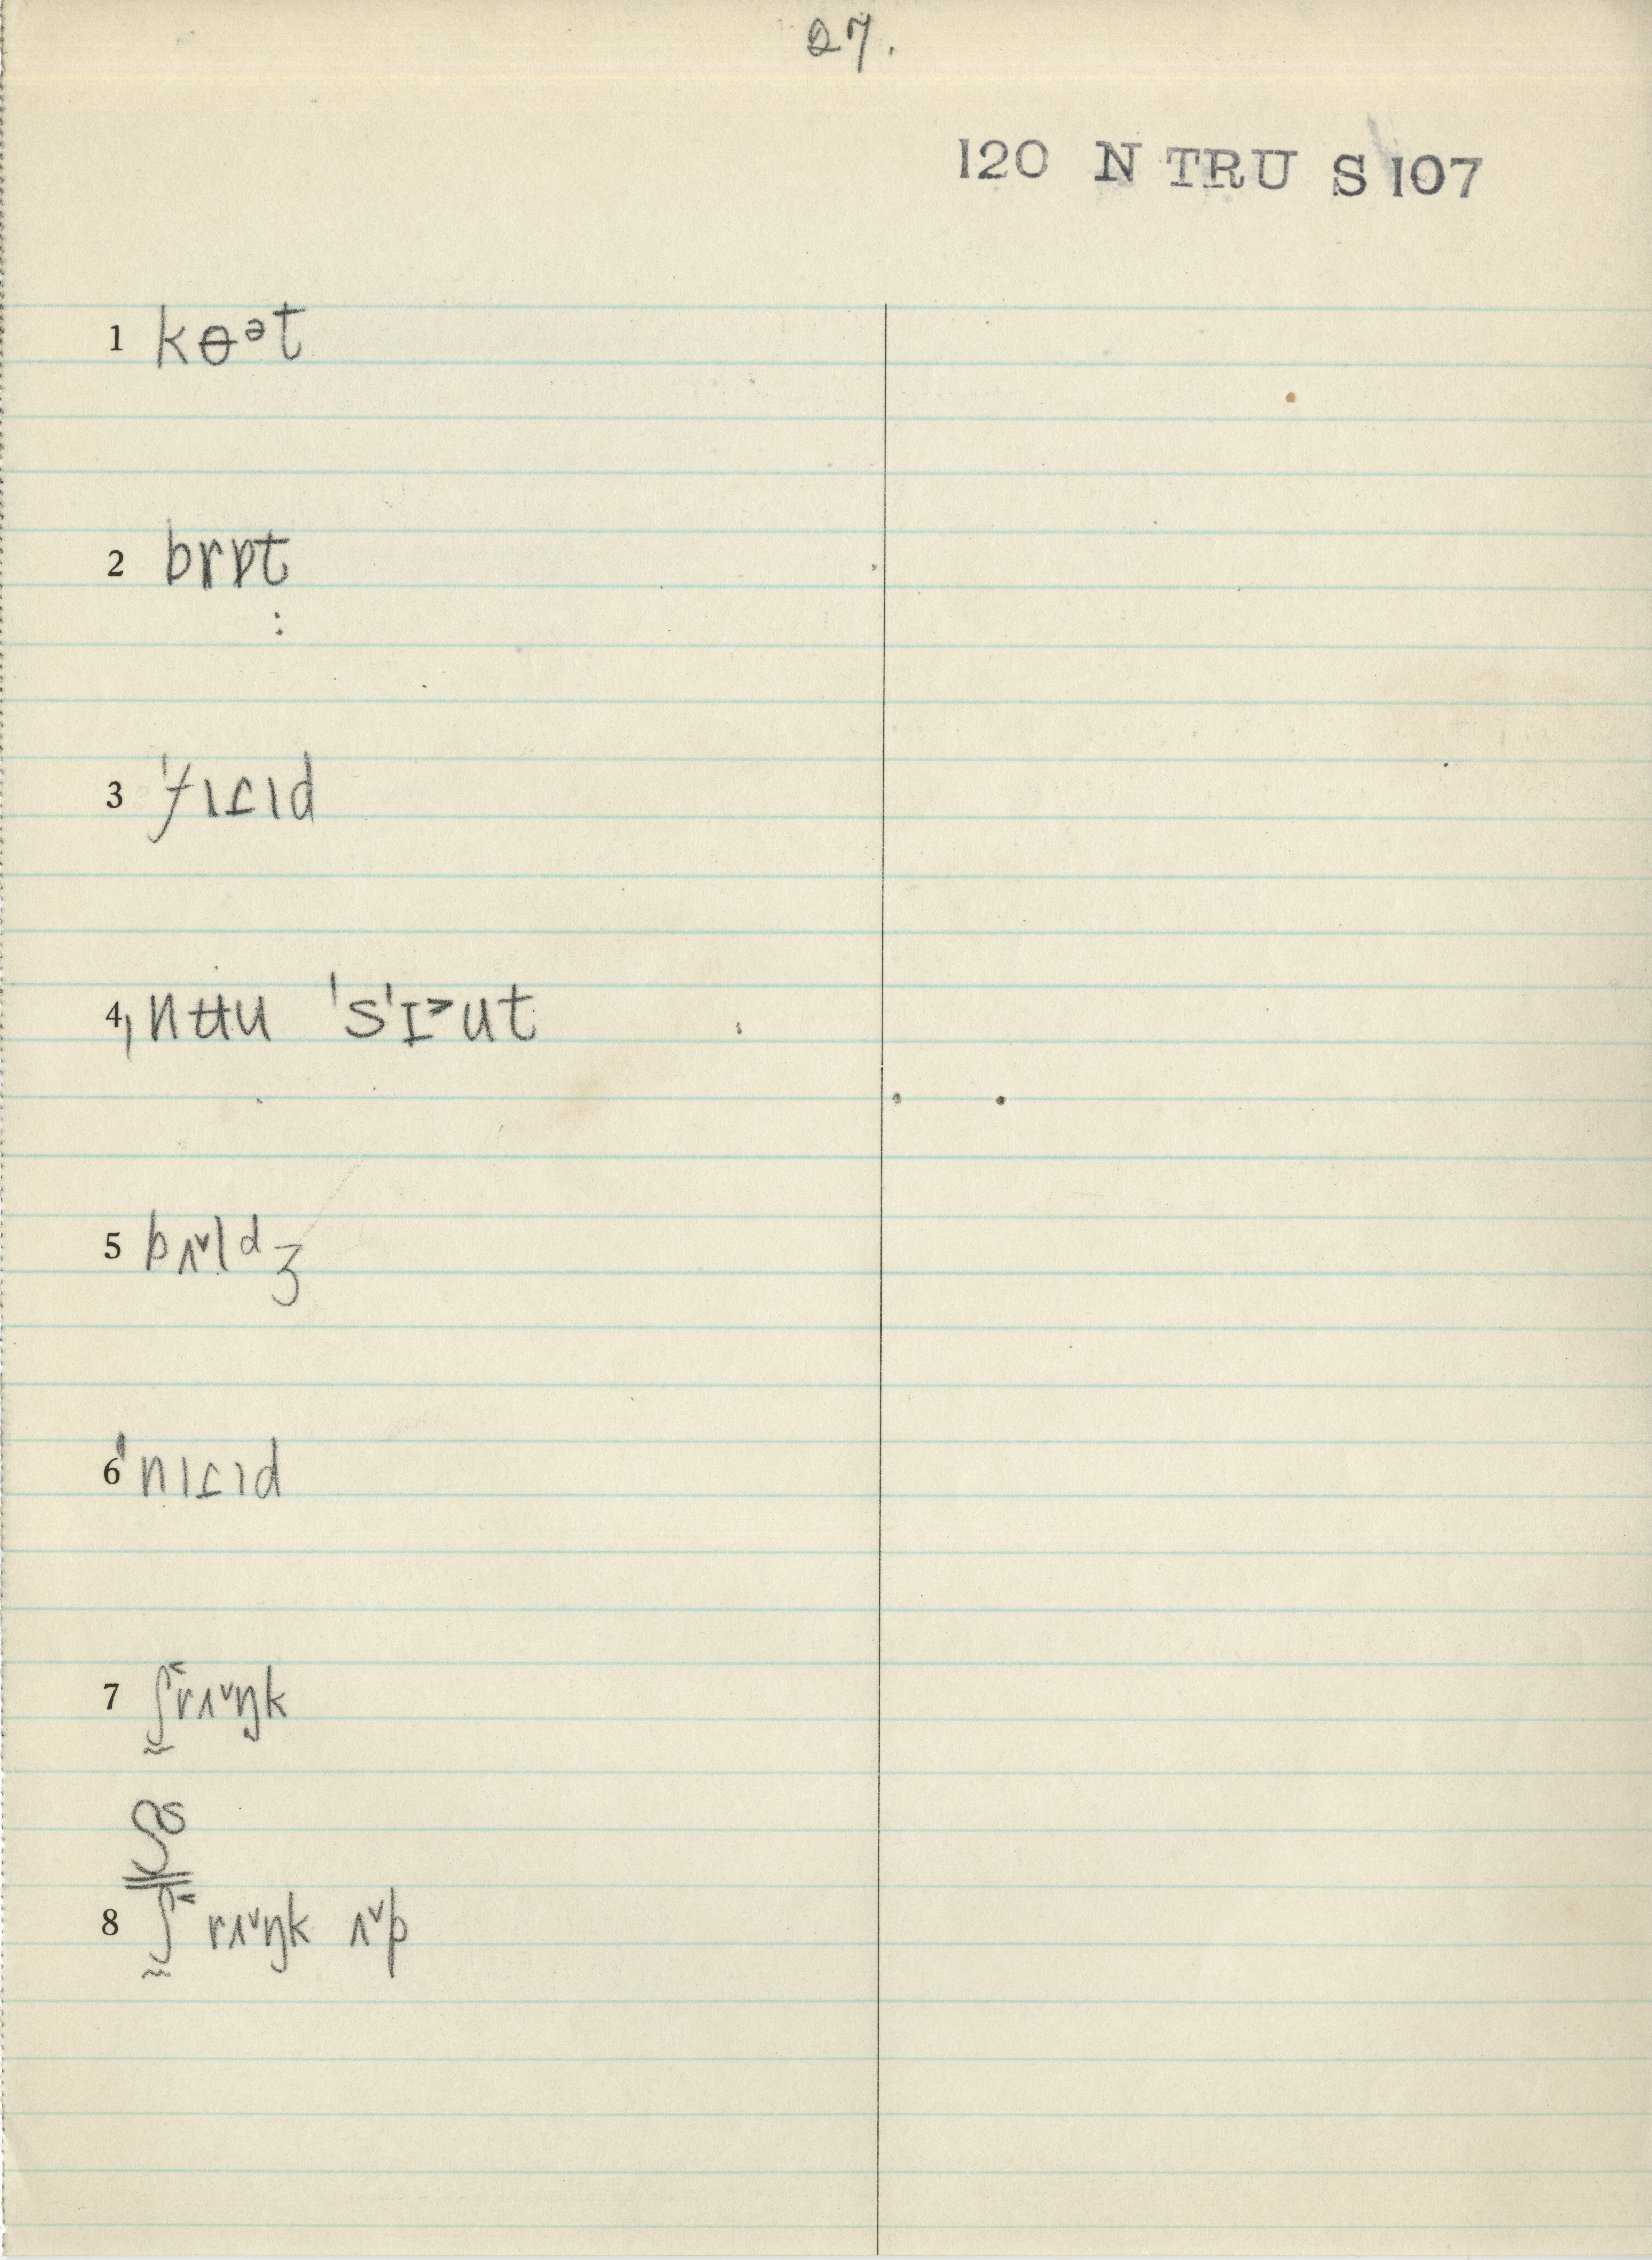 27.
120 N TRU S 107
1 kɵᵊt
2 brɒt
3 ˈfɪɾɪd
4 ˌnʉu ˈsˈɪ˃ut
5 bʌ˅lᵈʒ
6 ˈnɪɾɪd
7 ʃ˂rʌ˅ŋk
8 ʃ˂ rʌ˅ŋk ʌ˅p